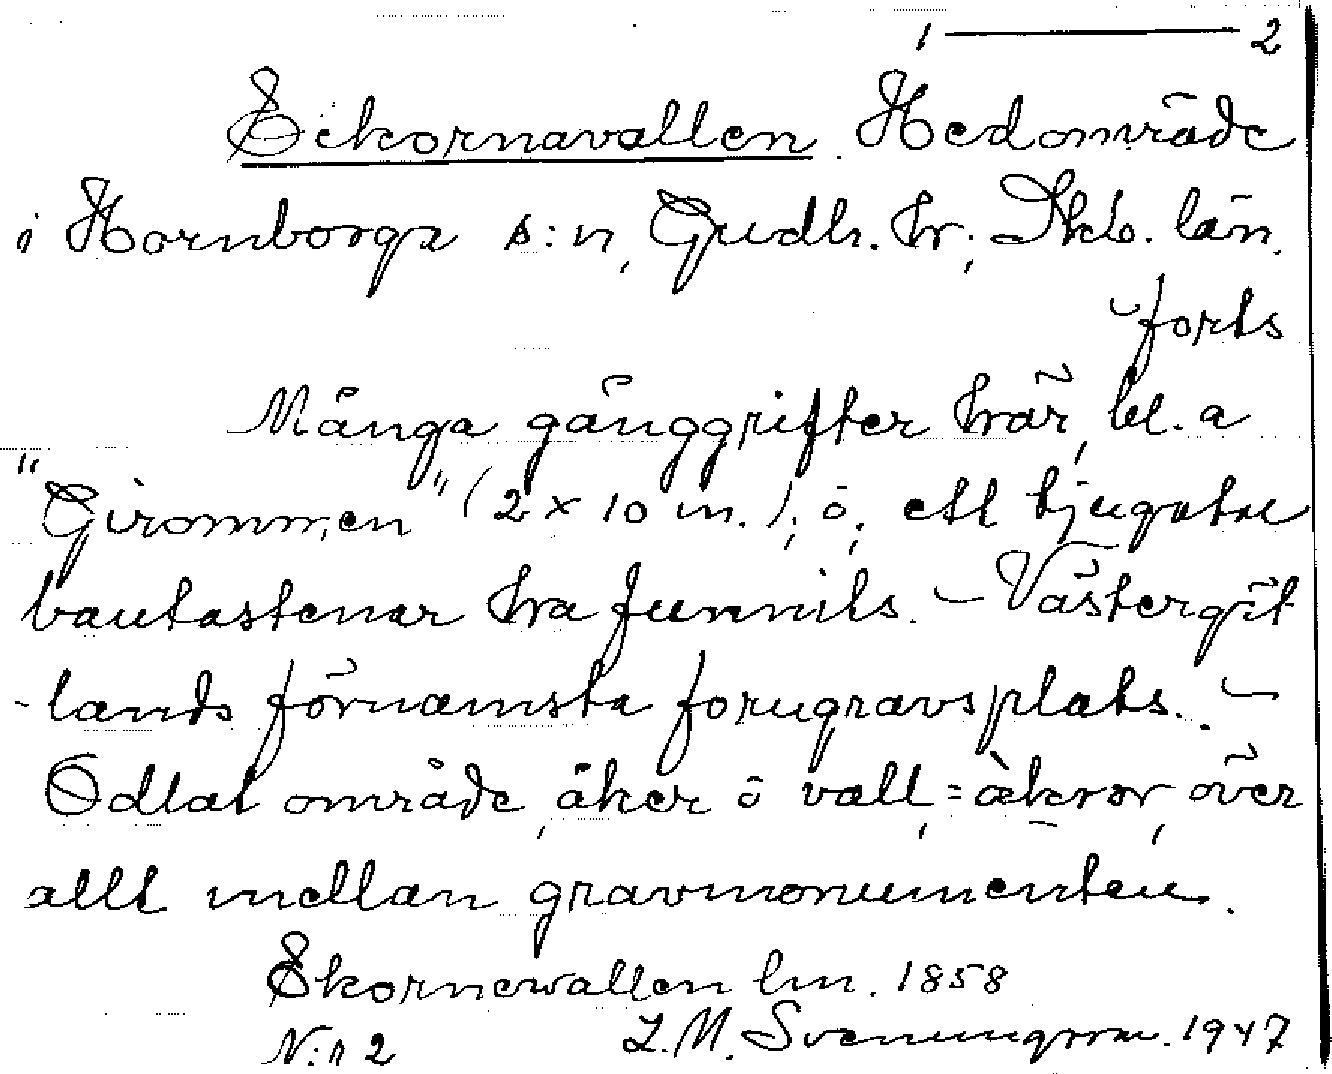 1 — 2
Eckornavallen. Hedområde
i Hornborga s:n, Gudh. hr; Skb. län.
forts
Många gånggrifter här, bl. a
"Girommen" (2 x 10 m.); ö; ett tjugutal
bautastenar ha funnits. - Västergöt
-lands förnämsta forngravsplats. -
Odlat område, åker ö vall, = åkrar, över
allt mellan gravmonumenten.
Ekornewallen lm. 1858
N:r 2 L.M. Svenungsson. 1947